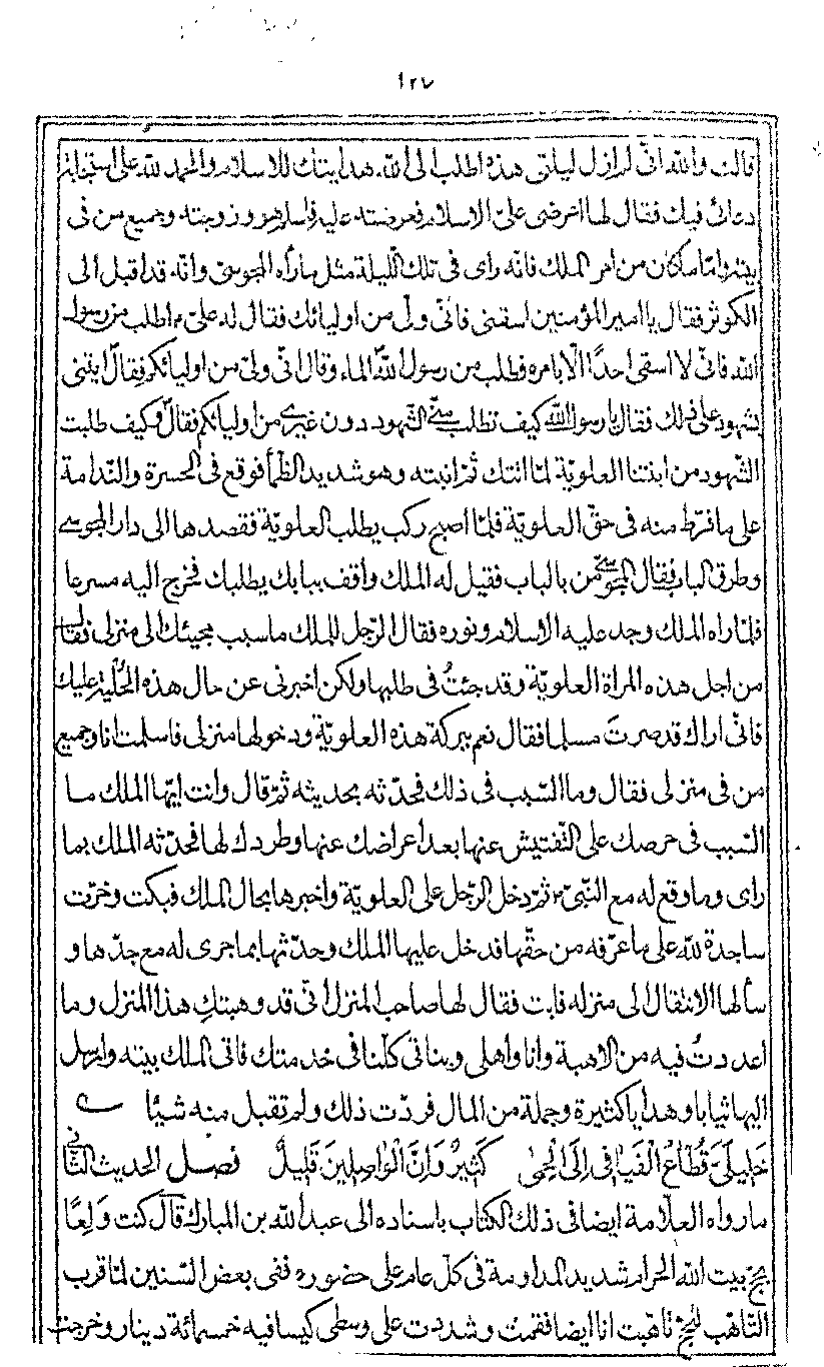 ١٢٧
قالت والله انّى لم ازل ليلتى هذه اطلب الى الله هدايتك للاسلام والحمد لله على استجابة
دعائى فيك فقال لها اعرضى علىّ الاسلام فعرضته عليه فاسلم هو وزوجته وجميع من فى
بيته وامّا ما كان من امر الملك فانّه راى فى تلك اللّيلة مثل ما رأه المجوسىّ وانّه قد اقبل الى
الكوثر فقال يا امير المؤمنين اسقنى فانّى ولىّ من اوليائك فقال له علىّ م اطلب من رسول
الله فانّى لا اسقى احدًا الّا بامره فطلب من رسول الله الماء وقال انّى ولىّ من اوليائكم فقال ايتنى
بشهود على ذلك فقال يا رسول الله كيف تطلب منّى الشّهود دون غيرى من اوليائكم فقال وكيف طلبت
الشّهود من ابنتنا العلويّة لمّا اتتك ثمّ انبته وهو شديد الظّمأ فوقع فى الحسرة والنّدامة
على ما فرّط منه فى حقّ العلويّة فلمّا اصبح ركب يطلب العلويّة فقصدها الى دار المجوسى
وطرق الباب فقال المجوسىّ من بالباب فقيل له الملك واقف ببابك يطلبك فخرج اليه مسرعا
فلمّا راه الملك وجد عليه الاسلام ونوره فقال الرّجل للملك ما سبب مجيئك الى منزلى فقال
من اجل هذه المراة العلويّة وقد جئتُ فى طلبها ولكن اخبرنى عن حال هذه الحُلية عليك
فانّى اراك قد صرتَ مسلما فقال نعم ببركة هذه العلويّة ودخولها منزلى فاسلمت انا وجميع
من فى منزلى فقال وما السّبب فى ذلك فحدّثه بحديثه ثمّ قال وانت ايّها الملك ما
السّبب فى حرصك على التّفتيش عنها بعد اعراضك عنها وطردك لها فحدّثه الملك بما
راى وما وقع له مع النّبىّ ص ثمّ دخل الرّجل على العلويّة واخبرها بحال الملك فبكت وخرّت
ساجدة لله على ما عرّفه من حقّها فدخل عليها الملك وحدّثها بما جرى له مع جدّها و
سألها الانتقال الى منزله فابت فقال لها صاحب المنزل انّى قد وهبتكِ هذا المنزل وما
اعددتُ فيه من الاهبة وانا واهلى وبناتى كلّنا فى خدمتك فاتى الملك بيته وارسل
اليها ثيابا وهدايا كثيرة وجملة من المال فردّت ذلك ولم تقبل منه شيئا
خَليلَىَّ قُطّاعُ الْفَيافى اِلَى الْحِمى كَثيرٌ وَاِنَّ الْواصِلينَ قَليلٌ فصل الحديث الثّانى
ما رواه العلّامة ايضا فى ذلك الكتاب باسناده الى عبد الله بن المبارك قال كنت وَلِعًا
بحجّ بيت الله الحرام شديد المداومة فى كلّ عام على حضوره ففى بعض السّنين لمّا قرب
التّاهّب للحجّ تاهّبت انا ايضا فقمت وشددت على وسطى كيسا فيه خمسمائة دينار وخرجت